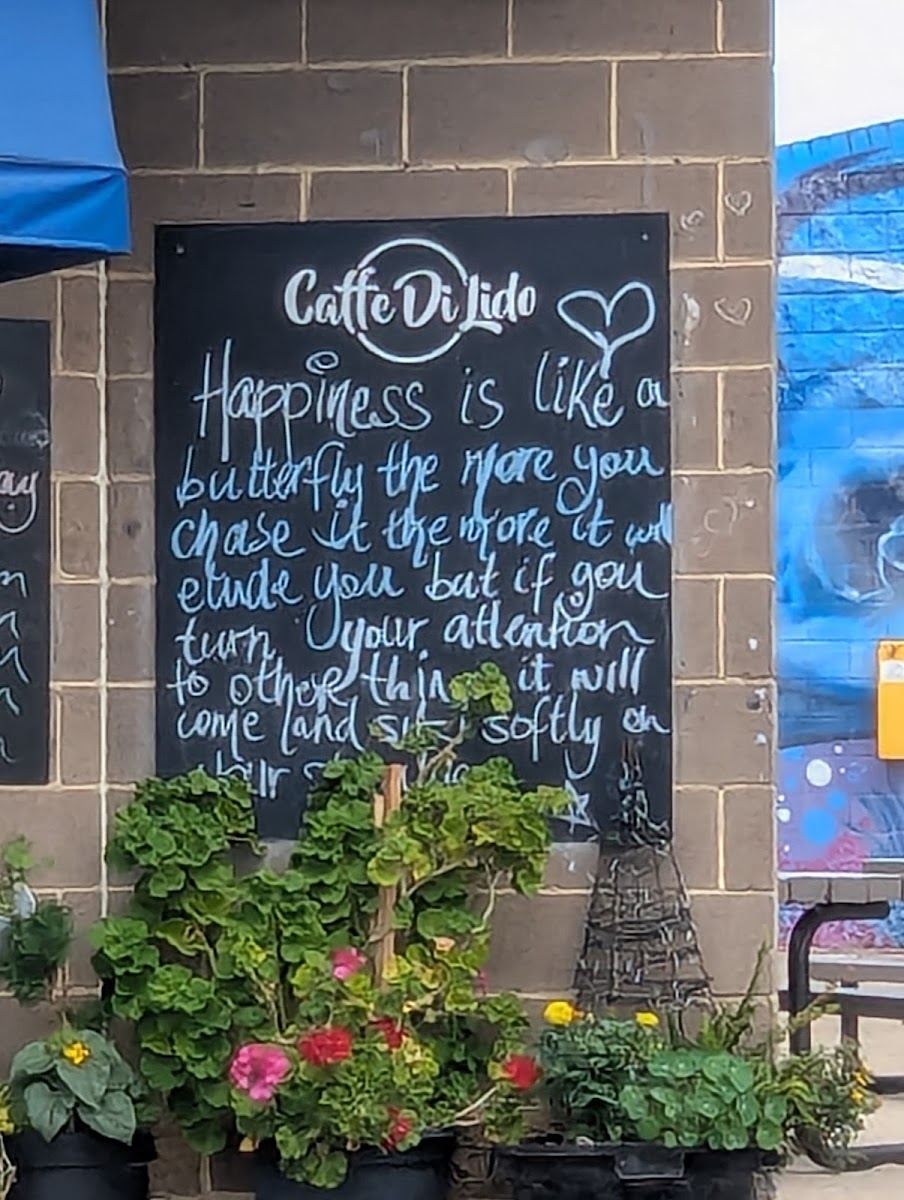 Caffe Di Lido
Happiness is like a
butterfly the more you
chase it the more it will
elude you but if you
turn your attention
to other thin it will
come and sits softly on